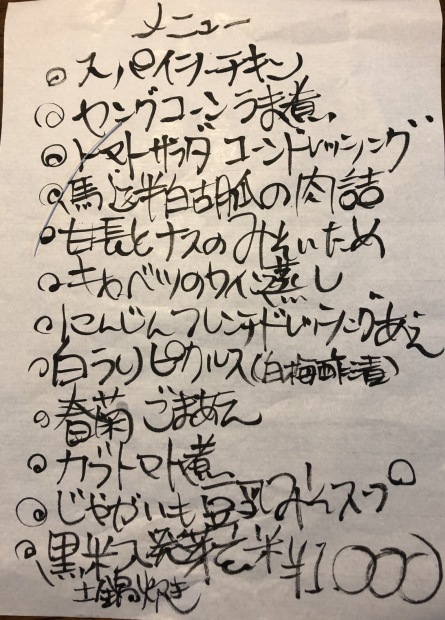 メニュー
スパイシーチキン
ヤングコーンうま煮
トマトサラダ コーンドレッシング
馬込半白胡瓜の肉詰
甘長とナスのみそいため
キャベツのワイン蒸し
にんじんフレンチドレッシングあえ
白うりピクルス(白梅酢漬)
春菊ごまあえ
カブトマト煮
じゃがいも豆乳みそスープ
黒米入発芽玄米 ¥1000
土鍋炊き